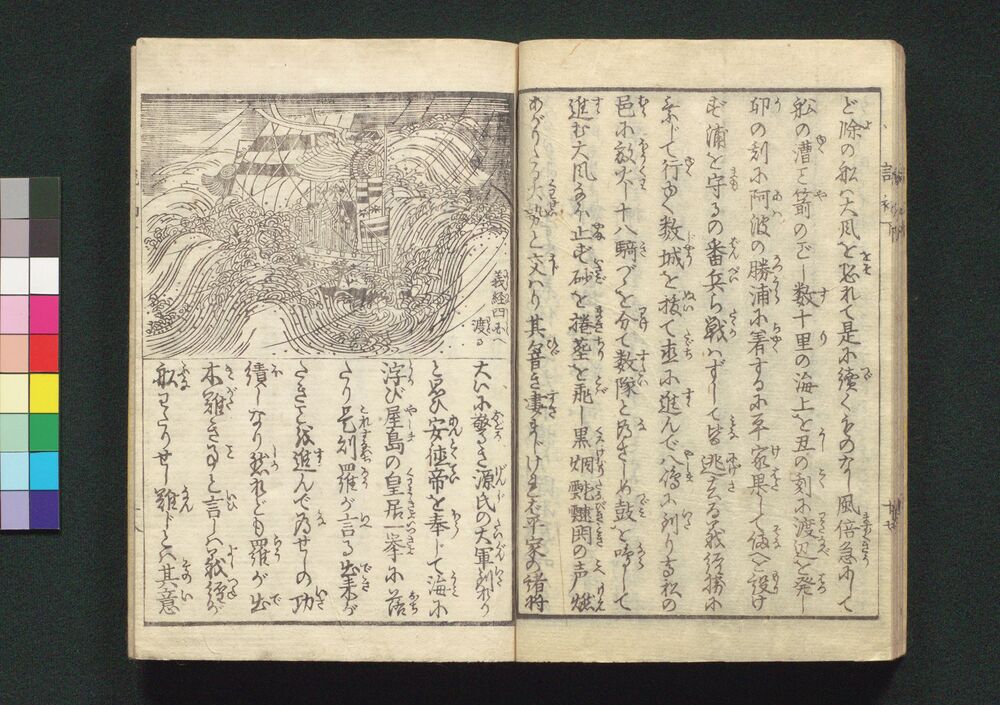 ど除の船ハ大风を恐れて是に續くものなし風倍急にして
船の漕こと箭のごとし数十里の海上を丑の刻に渡辺を発し
卯の刻に阿波の勝浦に着するに平家果して備へを設け
ず浦を守るの番兵ら戦ハずして皆逃去る義経勝に
乗じて行々数城を抜て東に進んで八嶋に到り高松の
邑に放火十八騎づゝを分て数隊と為さしめ鼓を鳴して
進む大风なほ止ず砂を捲き塵を飛し黒烟靉靆閧の声燃
あがりたる火勢と交ハり其音き凄まじければ平家の諸将
義経四国へ
渡る
大いに驚き源氏の大軍到れり
と思ひ安徳帝を奉じて海に
浮び屋島の皇居一挙に落
たり是則羅が言る出来が
たきことを進んで為せしの功
績しなり然れども羅が出
来難きの事と言しハ義経が
船にとりせし難しとハ其意